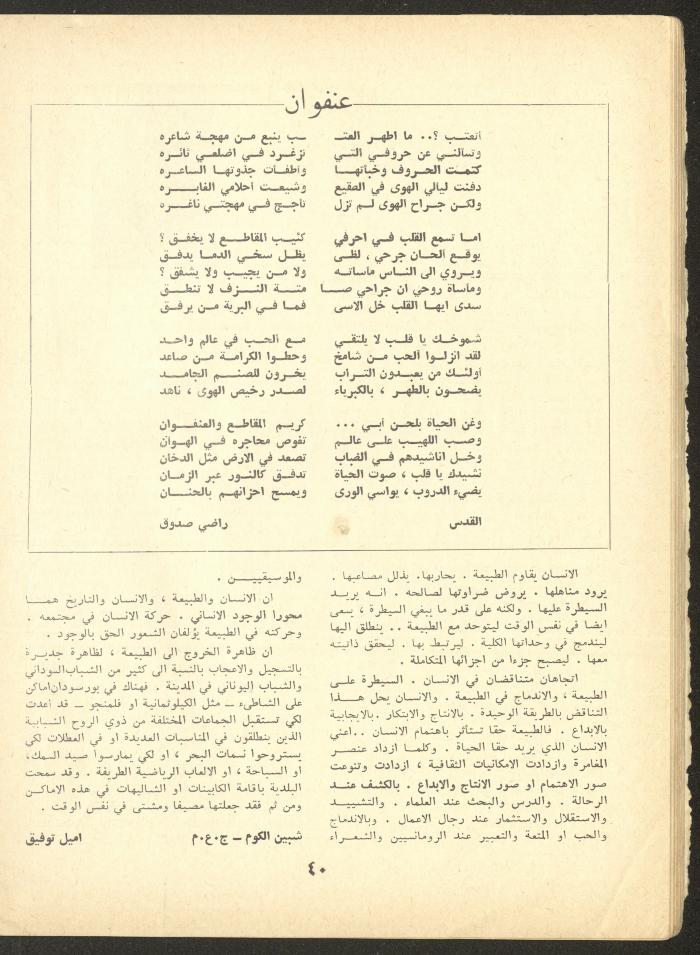 عنفوان
أتعتب ؟.. ما اطهر العتـ ـب ينبع من مهجة شاعره
وتسألني عن حروفي التي تزغرد في اضلعي ثائره
كتمت الحروف وخبأتها واطفأت جذوتها الساعره
دفنت ليالي الهوى في الصقيع وشيعت احلامي الغابره
ولكن جراح الهوى لم تزل تأجج في مهجتي ناغره
اما تسمع القلب في احرفي كئيب المقاطع لا يخفق ؟
يوقع الحان جرحي ، لظى يظل سخي الدما يدفق
ويروي الى الناس مأساته ولا من يجيب ولا يشفق ؟
ومأساة روحي ان جراحي صا متة النزف لا تنطق
سدى ايها القلب خل الاسى فما في البرية من يرفق
شموخك يا قلب لا يلتقي مع الحب في عالم واحد
لقد انزلوا الحب من شامخ وحطوا الكرامة من صاعد
أولئك من يعبدون التراب يخرون للصنم الجامد
يضحون بالطهر ، بالكبرياء لصدر رخيص الهوى ، ناهد
وغن الحياة بلحن أبي ... كريم المقاطع والعنفوان
وصب اللهيب على عالم تغوص محاجره في الهوان
وخل اناشيدهم في الضباب تصعد في الارض مثل الدخان
نشيدك يا قلب ، صوت الحياة تدفق كالنور عبر الزمان
يضيء الدروب ، يواسي الورى ويمسح احزانهم بالحنان
القدس راضي صدوق
الانسان يقاوم الطبيعة . يحاربها. يذلل مصاعبها .
يرود مناهلها . يروض ضراوتها لصالحه . انه يريد
السيطرة عليها . ولكنه على قدر ما يبغي السيطرة ، يسعى
ايضا في نفس الوقت ليتوحد مع الطبيعة .. ينطلق اليها
ليندمج في وحداتها الكلية . ليرتبط بها . ليحقق ذاتيته
معها . ليصبح جزءا من اجزائها المتكاملة .
اتجاهان متناقضان في الانسان . السيطرة على
الطبيعة ، والاندماج في الطبيعة . والانسان يحل هذا
التناقض بالطريقة الوحيدة . بالانتاج والابتكار .بالايجابية
بالابداع . فالطبيعة حقا تستأثر باهتمام الانسان ..اعني
الانسان الذي يريد حقا الحياة . وكلما ازداد عنصر
المغامرة وازدادت الامكانيات الثقافية ، ازدادت وتنوعت
صور الاهتمام او صور الانتاج والابداع . بالكشف عند
الرحالة . والدرس والبحث عند العلماء . والتشييد
والاستقلال والاستثمار عند رجال الاعمال . وبالاندماج
والحب او المتعة والتعبير عند الرومانسيين والشعراء
والموسيقيين .
ان الانسان والطبيعة ، والانسان والتاريخ هما
محورا الوجود الانساني . حركة الانسان في مجتمعه .
وحركته في الطبيعة يؤلفان الشعور الحق بالوجود .
ان ظاهرة الخروج الى الطبيعة ، لظاهرة جديرة
بالتسجيل والاعجاب بالنسبة الى كثير من الشباب السوداني
والشباب اليوناني في المدينة . فهناك في بورسودان اماكن
على الشاطىء – مثل الكيلوثمانية او فلمنجو – قد أعدت
لكي تستقبل الجماعات المختلفة من ذوي الروح الشبابية
الذين ينطلقون في المناسبات العديدة او في العطلات لكي
يستروحوا نسمات البحر ، او لكي يمارسوا صيد السمك،
او السباحة ، او الالعاب الرياضية الطريفة . وقد سمحت
البلدية باقامة الكابينات او الشاليهات في هذه الاماكن
ومن ثم فقد جعلتها مصيفا ومشتى في نفس الوقت .
شبين الكوم – ج.ع.م اميل توفيق
٤٠